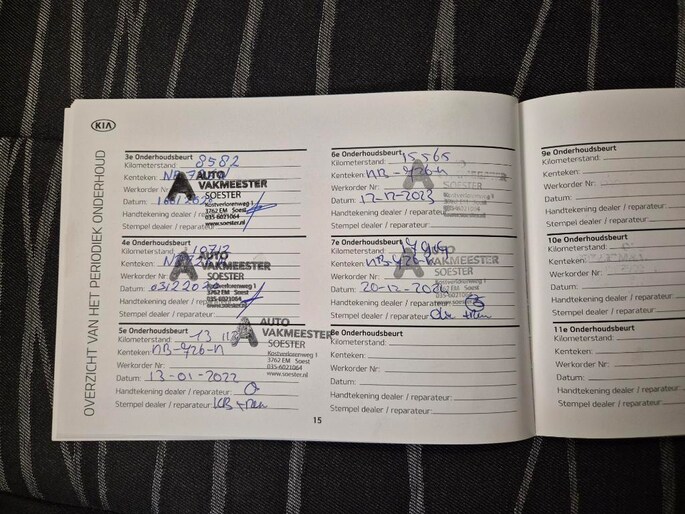 KIA
OVERZICHT VAN HET PERIODIEK ONDERHOUD
3e Onderhoudsbeurt
Kilometerstand: 8582
Kenteken:
Werkorder Nr
Datum:
Handtekening dealer / reparateur:
Stempel dealer / reparateur:
AUTO
VAKMEESTER
SOESTER
Kostverlorenweg 1
3762 EM Soest
035-6021064
www.soester.nl
4e Onderhoudsbeurt
Kilometerstand:
Kenteken:
Werkorder Nr
Datum:
Handtekening dealer / reparateur:
Stempel dealer / reparateur:
AUTO
VAKMEESTER
SOESTER
Kostverlorenweg 1
3762 EM Soest
035-6021064
www.soester.nl
5e Onderhoudsbeurt
Kilometerstand:
Kenteken: NB-726-N
Werkorder Nr
Datum: 13-01-2022
Handtekening dealer / reparateur:
Stempel dealer / reparateur:
AUTO
VAKMEESTER
SOESTER
Kostverlorenweg 1
3762 EM Soest
035-6021064
www.soester.nl
6e Onderhoudsbeurt
Kilometerstand: 15565
Kenteken: NB-726-N
Werkorder Nr
Datum: 12-12-2023
Handtekening dealer / reparateur:
Stempel dealer / reparateur:
7e Onderhoudsbeurt
Kilometerstand:
Kenteken: NB-726-N
Werkorder Nr
Datum: 20-12-202
Handtekening dealer / reparateur:
Stempel dealer / reparateur:
AUTO
VAKMEESTER
SOESTER
8e Onderhoudsbeurt
Kilometerstand:
Kenteken:
Werkorder Nr
Datum:
Handtekening dealer / reparateur:
Stempel dealer / reparateur:
15
9e Onderhoudsbeurt
Kilometerstand:
Kenteken:
Werkorder Nr
Datum:
Handtekening dealer
Stempel dealer / repara
10e Onderhoudsbeurt
Kilometerstand:
Kenteken:
Werkorder Nr
Datum:
Handtekening dealer /
Stempel dealer / repara
11e Onderhoudsbeurt
Kilometerstand:
Kenteken:
Werkorder Nr
Datum:
Handtekening dealer /
Stempel dealer / repara